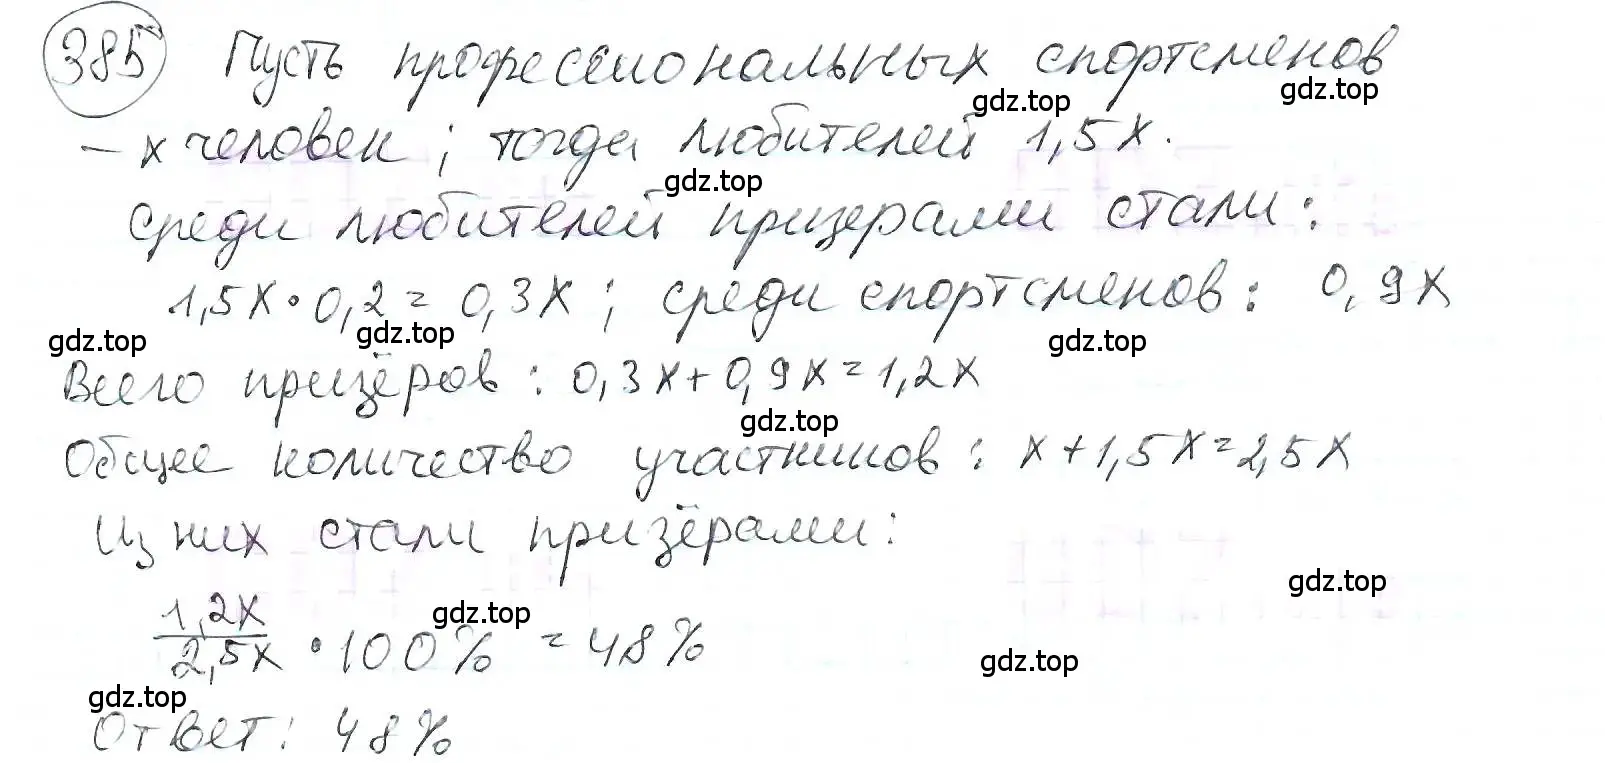 385 Пусть профессиональных спортсменов
gdz.top gdz.top
– x человек; тогда любителей 1,5x.
gdz.top
Среди любителей призерами стали:
1,5x · 0,2 = 0,3x; среди спортсменов: 0,9x
gdz.top gdz.top gdz.top
Всего призёров: 0,3x + 0,9x = 1,2x
gdz.top
Общее количество участников: x + 1,5x = 2,5x
Из них стали призёрами:
gdz.top
1,2x/2,5x · 100% = 48%
gdz.top gdz.top
gdz.top
Ответ: 48%